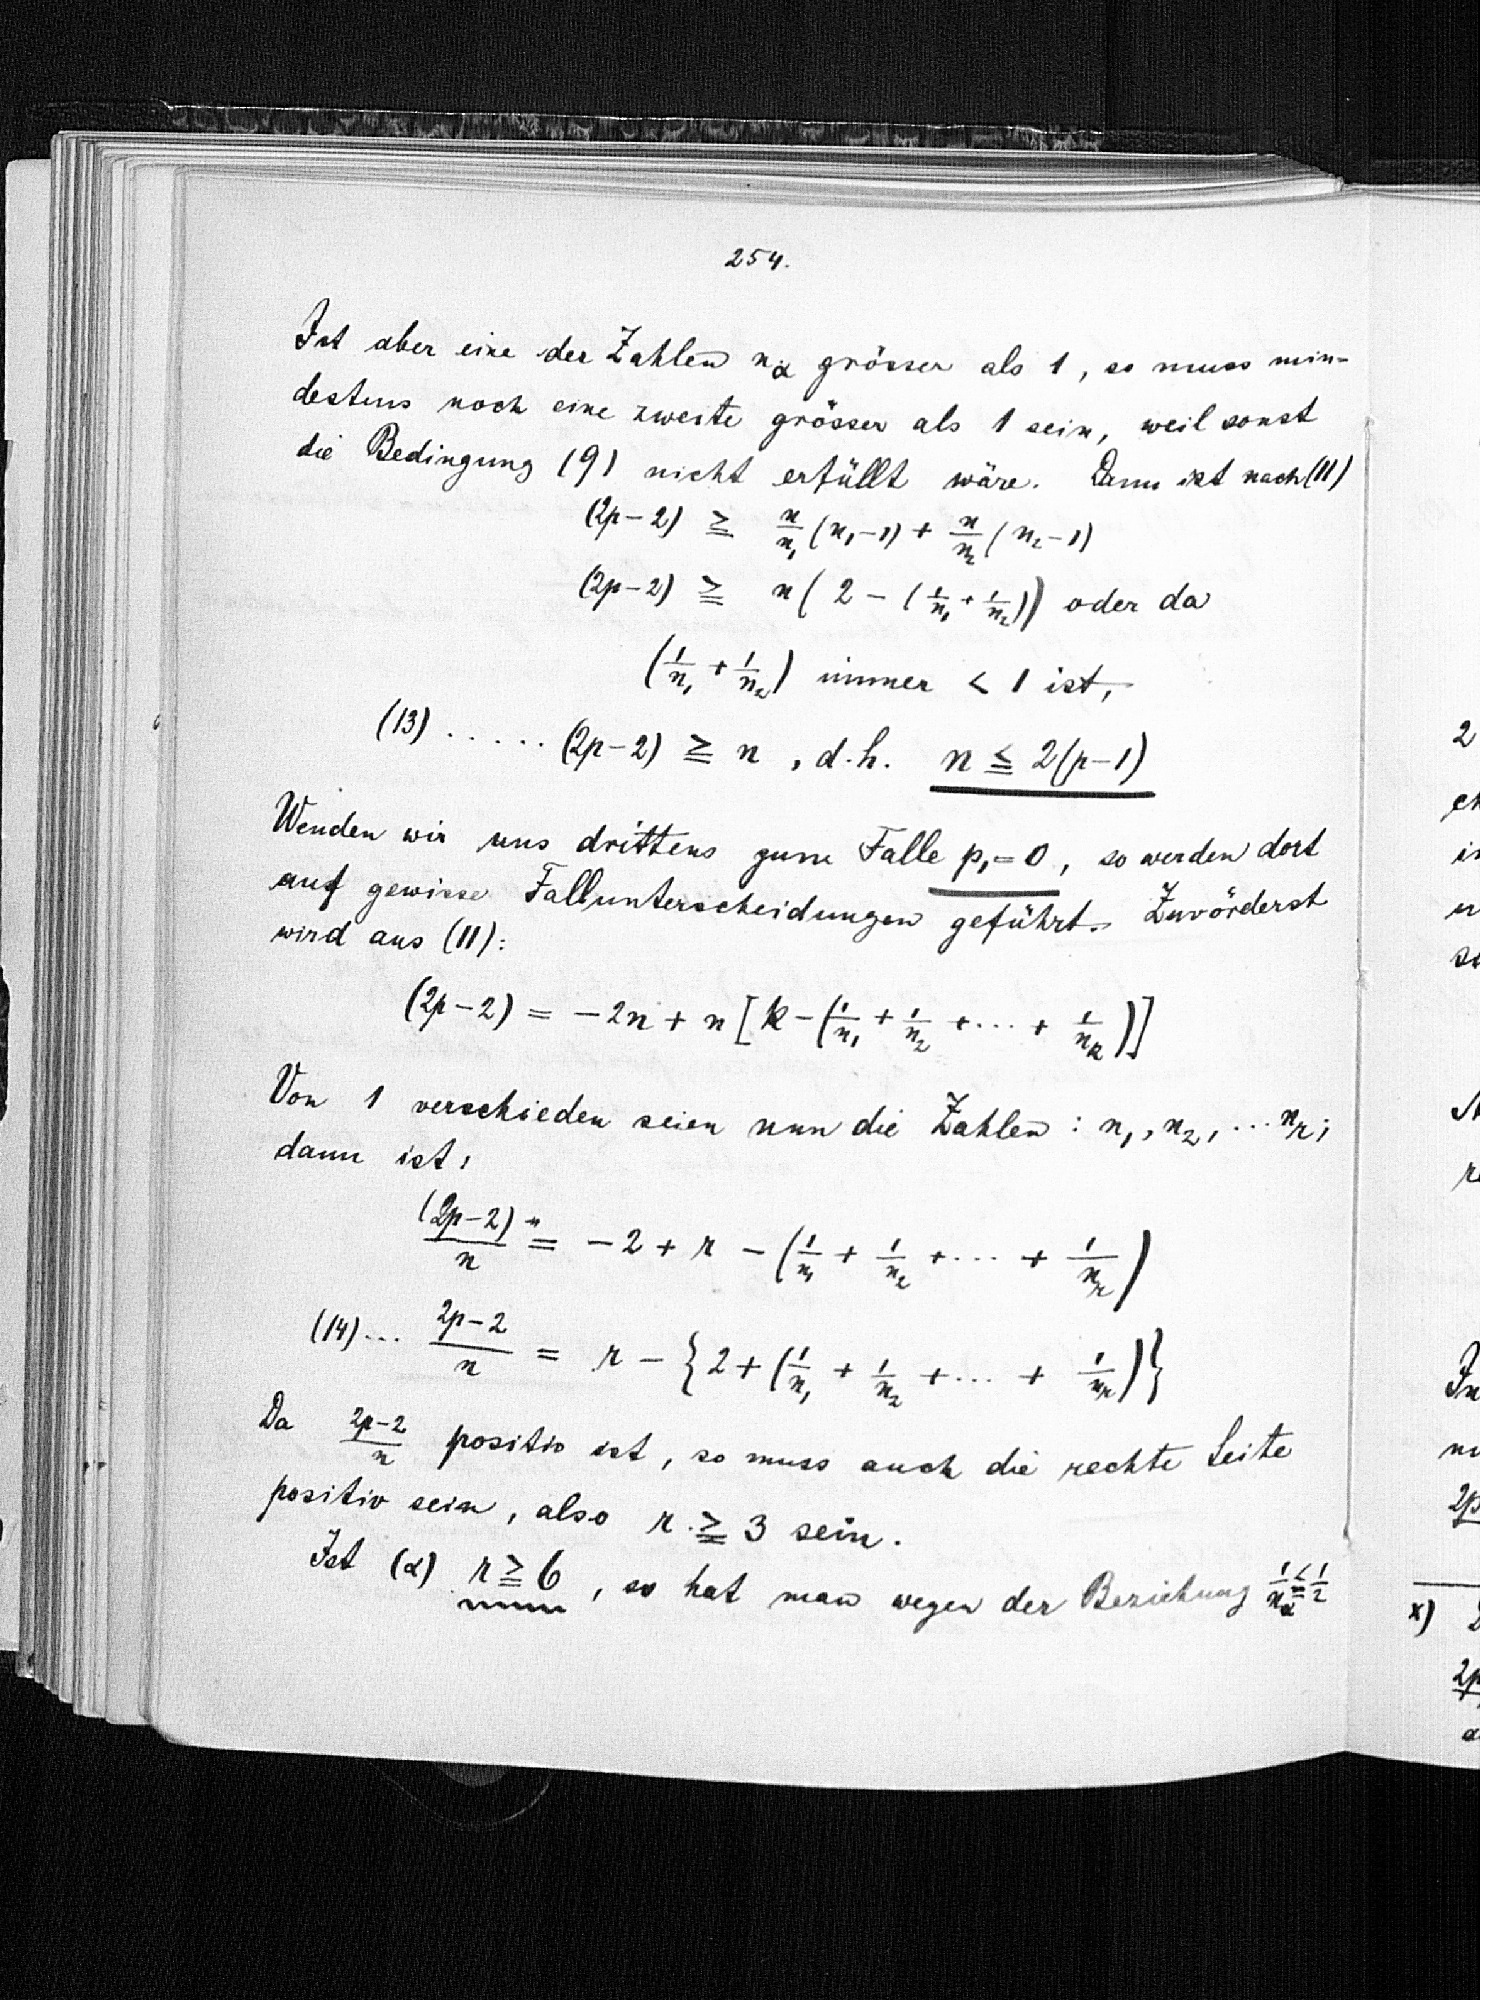 254.
Ist aber eine der Zahlen n_α grösser als 1, so muss min-
destens noch eine zweite grösser als 1 sein, weil sonst
die Bedingung (9) nicht erfüllt wäre. Dann ist nach (11)
(2p-2) ≧ n/n₁ (n₁-1) + n/n₂ (n₂-1)
(2p-2) ≧ n(2 - (1/n₁ + 1/n₂)) oder da
(1/n₁ + 1/n₂) immer < 1 ist,
(13) ..... (2p-2) ≧ n , d.h. n ≦ 2(p-1)
Wenden wir uns drittens zum Falle p₁=0, so werden dort
auf gewisse Fallunterscheidungen geführt. Zuvörderst
wird aus (11):
(2p-2) = -2n + n [k - (1/n₁ + 1/n₂ + ... + 1/n_k)]
Von 1 verschieden seien nun die Zahlen: n₁, n₂, ... n_r;
dann ist,
(2p-2)/n = -2 + r - (1/n₁ + 1/n₂ + ... + 1/n_r)
(14)... 2p-2/n = r - {2 + (1/n₁ + 1/n₂ + ... + 1/n_r)}
Da 2p-2/n positiv ist, so muss auch die rechte Seite
positiv sein, also r ≧ 3 sein.
Ist (α) r ≧ 6, so hat man wegen der Beziehung 1/n_α ≦ 1/2